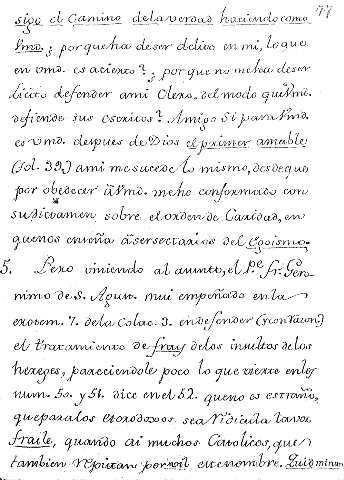 77
sigo el Camino de la verdad haciendo como
Vmd.; porque ha de ser delito en mi, lo que
en vmd. es acierto?; porque no me ha de ser
licito defender a mi Clero, del modo que Vmd.
defiende sus escritos? Amigo si para Vmd.
es vmd. despues de Dios el primer amable
(fol. 39.) a mi me sucede lo mismo, desde que
por obedecer à Vmd. me he conformado con
su dictamen sobre el orden de Caridad, en
que nos enseña à ser sectarios del Egoismo.
5. Pero viniendo al asunto, el Pe. Fr. Gero-
nimo de S. Agun. mui empeñado en la
exortn. 7. de la Colac. 3. en defender (y con razon)
el tratamiento de fray de los insultos de los
hereges, pareciendole poco lo que vierte en los
num. 50. y 51. dice en el 52. que no es estraño,
que para los etorodoxos sea ridicula la voz
fraile, quando ai muchos Catolicos, que
tambien reputan por vil este nombre. Quid minum